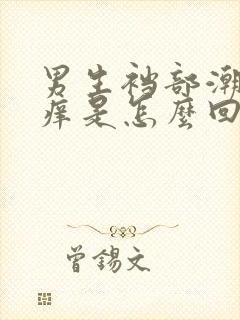 男生裆部潮
痒是怎麼回
曾錫文